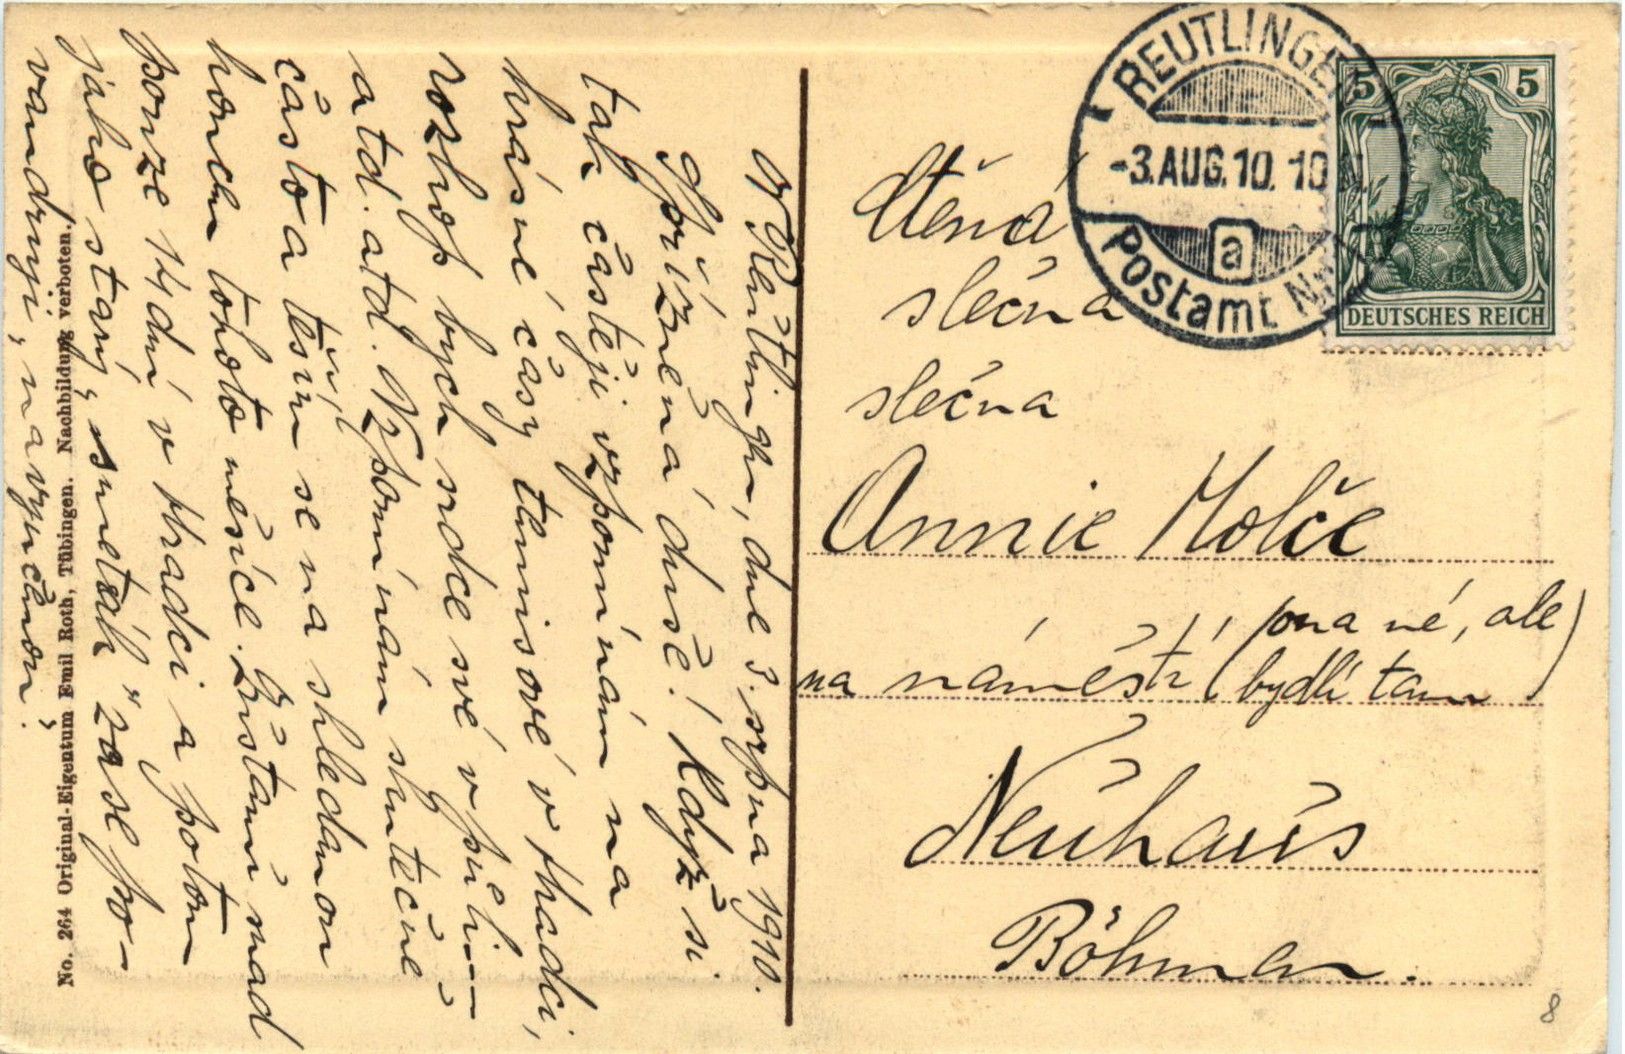 V Reutlingen, dne 3. srpna 1910.
Spřízněná duše! Když si
tak častěji vzpomínám na
krásné časy tenisové v Hradci,
rozkoš bych srdce své v půli –
atd. atd. Vzpomínám skutečně
často a těším se na shledanou
koncem tohoto měsíce. Zůstanu snad
pouze 14 dní v Hradci a potom
jako starý "smeták" zase po-
vandruji,
No. 264 Original-Eigentum Emil Roth, Tübingen. Nachbildung verboten.
REUTLINGEN
-3.AUG.10.10
a
Postamt Nr.
5 5
DEUTSCHES REICH
Ctěná
slečna
slečna
Annie Holče
na náměstí (ona né, ale
bydlí tam)
Neuhaus
Böhmen.
8